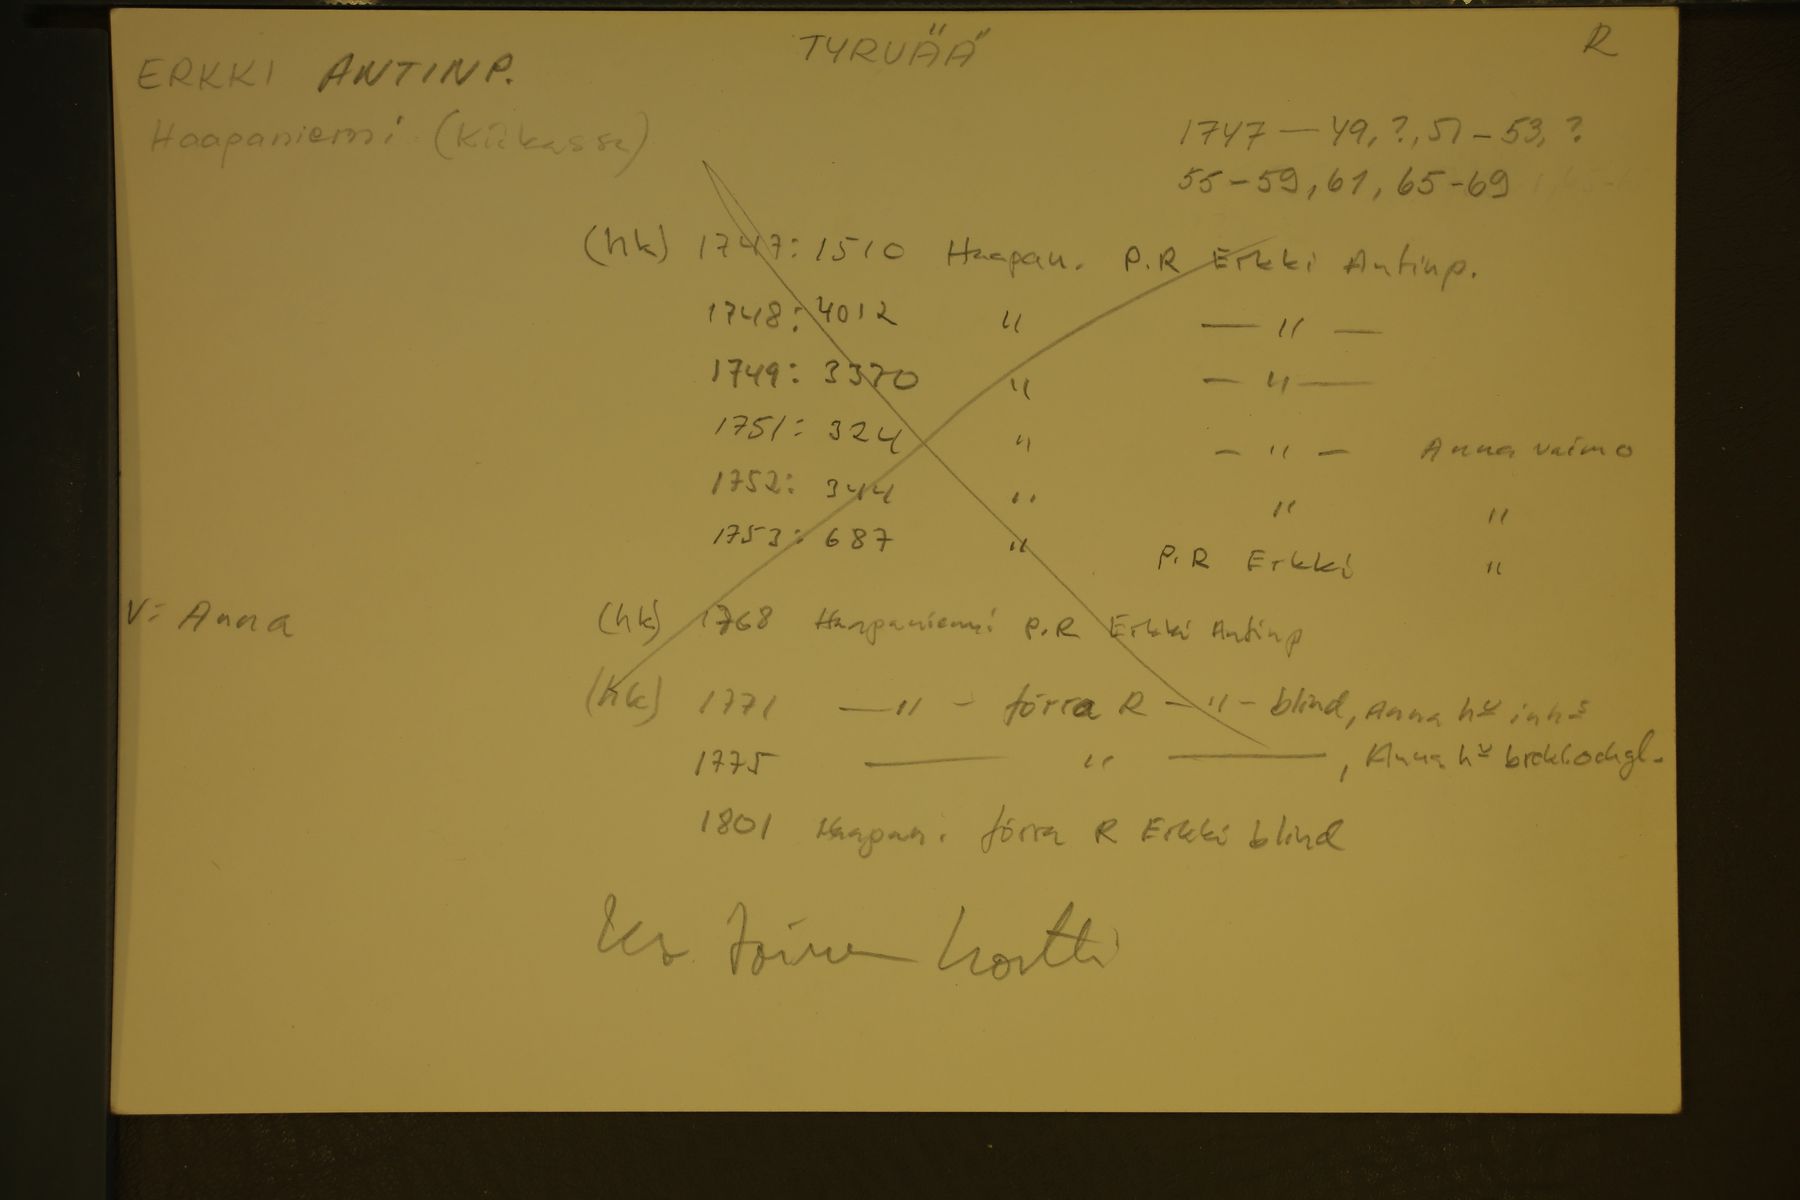 TYRVÄÄ
R
ERKKI ANTINP.
Haapaniemi (Kiikassa)
1747 — 49, ?, 51 – 53, ?
55 – 59, 61, 65 - 69
(hk) 1747: 1510 Haapan. P.R Erkki Antinp.
1748: 4012 " — " —
1749: 3370 " — " —
1751: 324 " — " — Anna vaimo
1752: 344 " " "
1753: 687 " P.R Erkki "
V: Anna
(hk) 1768 Haapaniemi P.R Erkki Antinp
(hk) 1771 — " – förra R – " – blind, Anna hu inhs
1775 — " — , Anna hu
1801 Haapan. förra R Erkki blind
Kortti